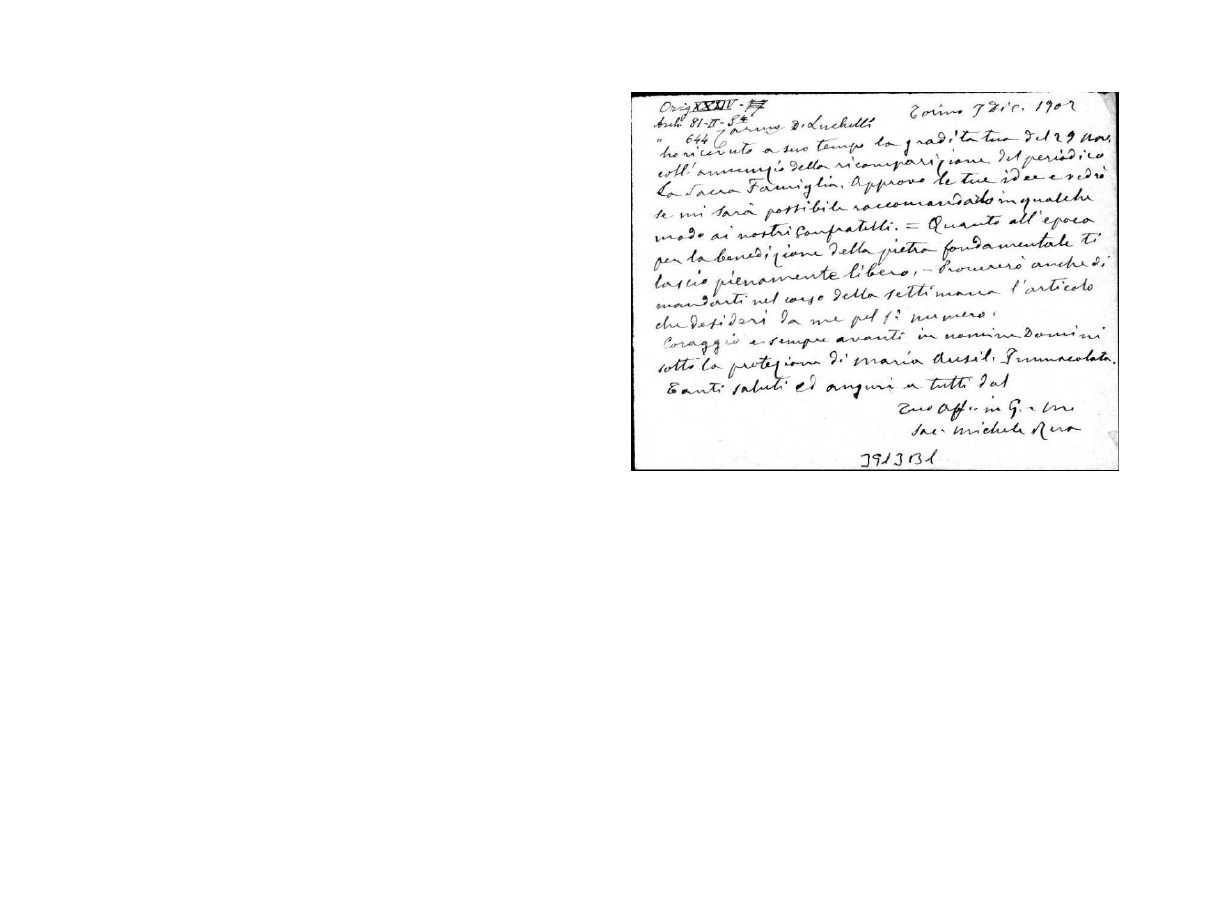 Orig XXXIV -
Arch. 81-II-54
" 644
Torino 7 Dic. 1902
Carmo D. Luchelli
ho ricevuto a suo tempo la gradita tua del 29 Nov.
coll'annunzio della ricomparizione del periodico
La Sacra Famiglia. Approvo le tue idee e vedrò
se mi sarà possibile raccomandarlo in qualche
modo ai nostri Confratelli. = Quanto all'epoca
per la benedizione della pietra fondamentale ti
lascio pienamente libero. - Procurerò anche di
mandarti nel corso della settimana l'articolo
che desideri da me pel 1° numero.
Coraggio e sempre avanti in nomine Domini
sotto la protezione di Maria Ausil. Immacolata.
Tanti saluti ed auguri a tutti dal
Tuo Aff. in G. e M.
Sac. Michele Rua
3913 B1